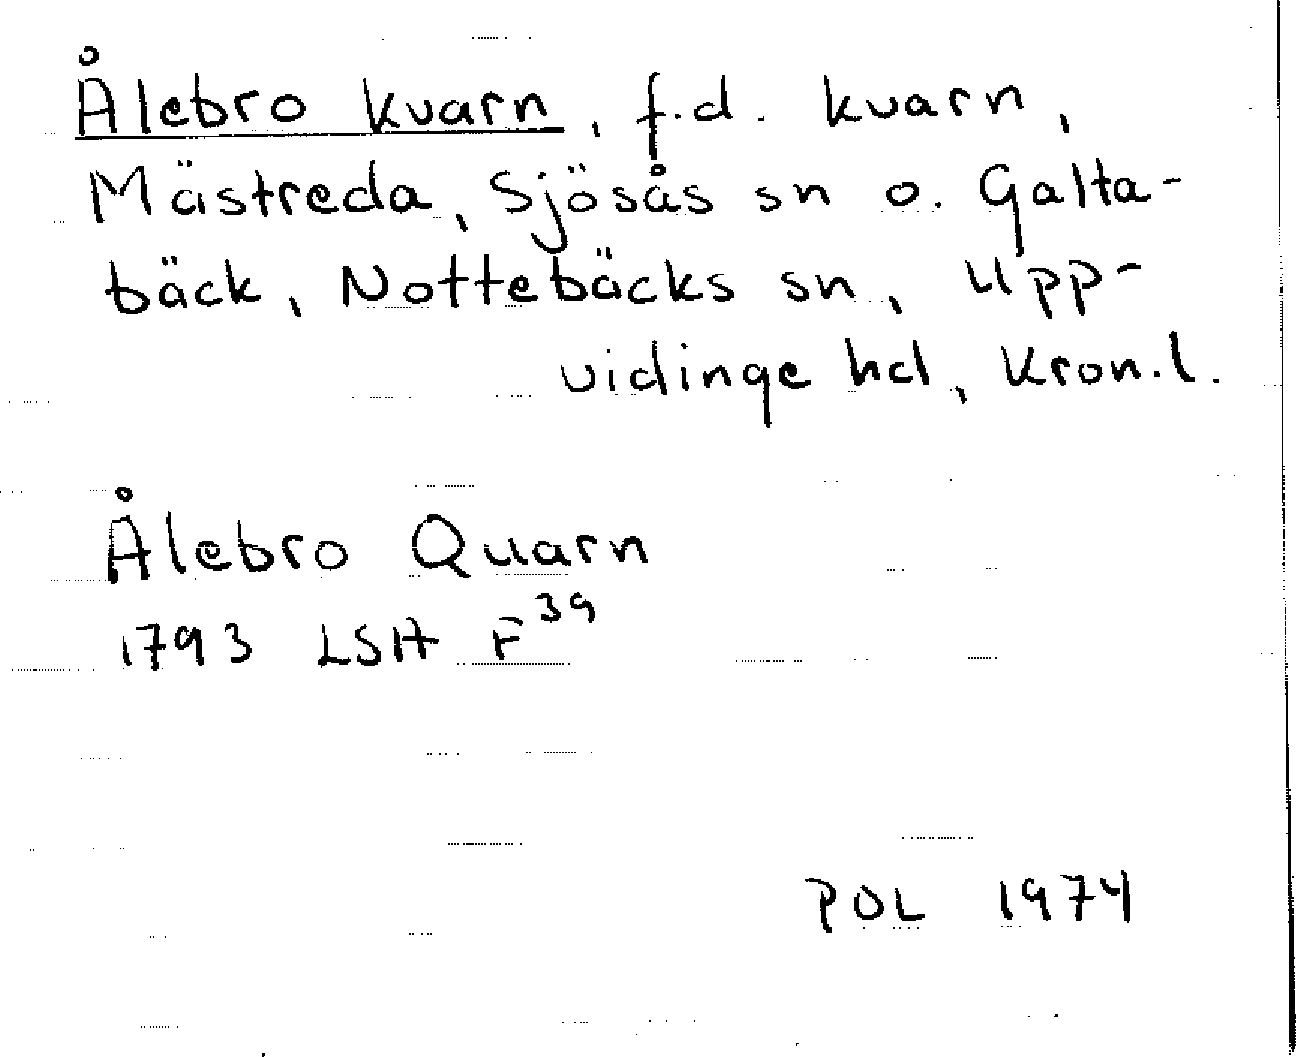 Ålebro kvarn, f.d. kvarn,
Mästreda, Sjösås sn o. Galta-
bäck, Nottebäcks sn, Upp-
vidinge hd, Kron.l.
Ålebro Quarn
1793 LSH F39
POL 1974